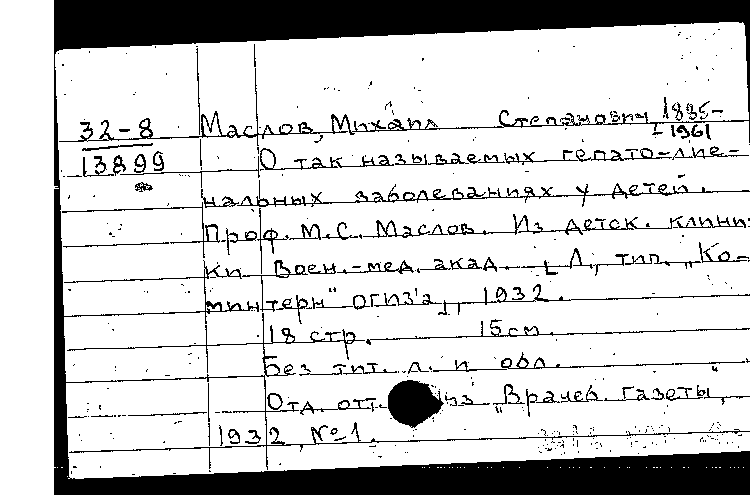 32-8 Маслов, Михаил Степанович, 1885-
-1961
13899 О так называемых гепато-лие-
нальных заболеваниях у детей.
Проф. М.С. Маслов. Из детск. клини-
ки Воен.-мед. акад. [Л., тип. „Ко-
минтерн" ОГИЗ'а], 1932.
18 стр. 15 см.
Без тит. л. и обл.
Отд. отт. из „Врачеб. газеты",
1932, №1.